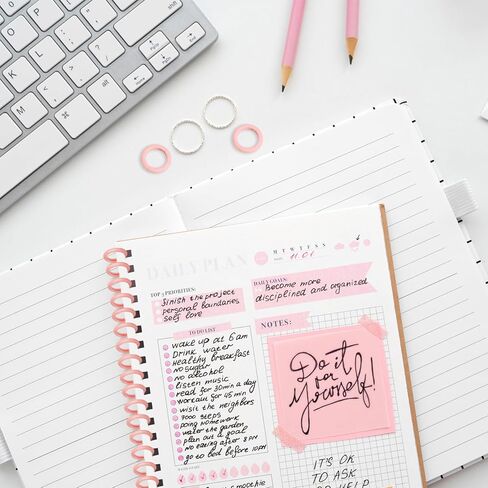 DAILY PLAN
M T W T F S S
11.01
TOP 3 PRIORITIES:
Finish the project
personal boundaries
self love
DAILY GOALS:
Become more
disciplined and organized
TO DO LIST
wake up at 6 am
Drink water
healthy breakfast
no sugar
no alcohol
listen music
read for 30 min a day
workout for 45 min
visit the neighbors
7000 steps
doing homework
water the garden
plan out a goal
no eating after 8 pm
go to bed before 10pm
NOTES:
Do it
for
Yourself!
IT'S OK
TO ASK
smoothie
O
P
K
L
M
alt